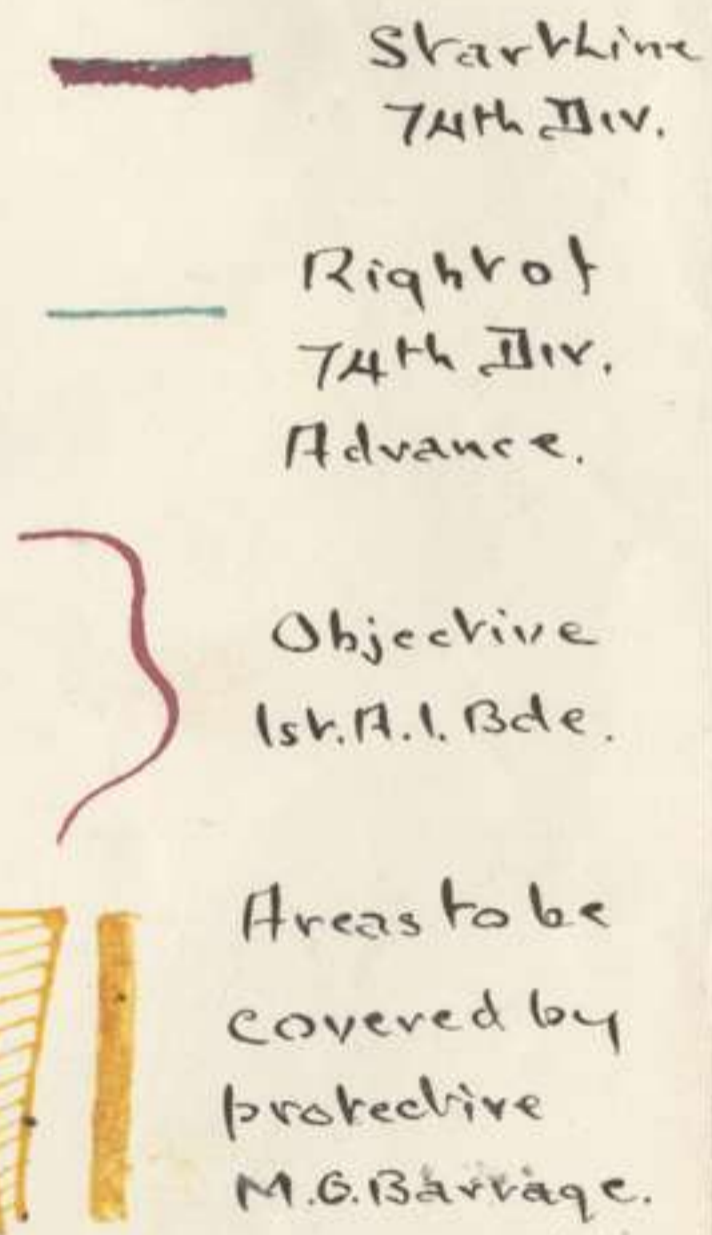 Start Line
74th Div.
Right of
74th Div.
Advance.
Objective
1st. A.I. Bde.
Areas to be
covered by
protective
M.G. Barrage.